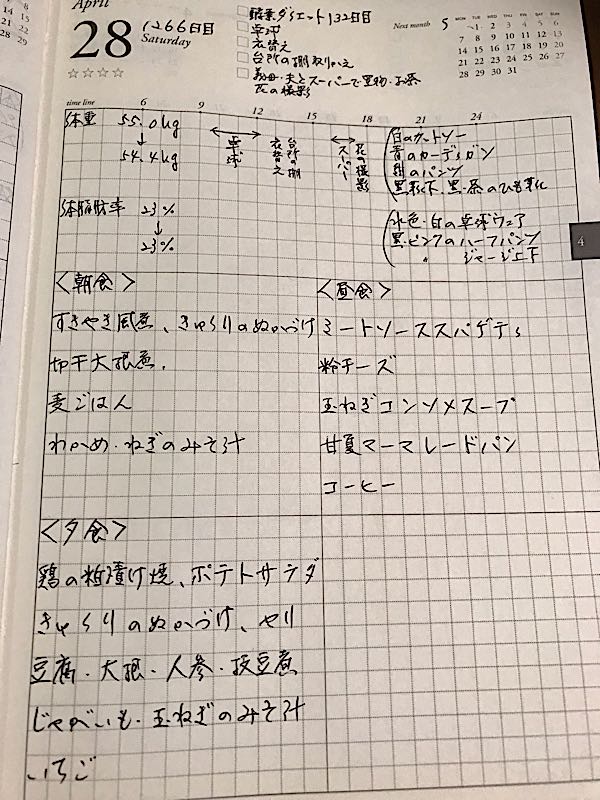 April
28
Saturday
1266日目
酵素ダイエット132日目
卓球
衣替え
台所の棚取りかえ
義母・夫とスーパーで買物・お茶
花の撮影
Next month 5
MON TUE WED THU FRI SAT SUN
1 2 3 4 5 6
7 8 9 10 11 12 13
14 15 16 17 18 19 20
21 22 23 24 25 26 27
28 29 30 31
time line 6 9 12 15 18 21 24
体重 55.0kg
↓
54.4kg
卓球
衣替え
台所の棚
スーパー
花の撮影
白のカットソー
青のカーディガン
紺のパンツ
黒靴下、黒・茶のひも靴
水色・白の卓球ウェア
黒・ピンクのハーフパンツ
〃 ジャージ上下
体脂肪率 23%
↓
23%
4
<朝食>
すきやき風煮、きゅうりのぬかづけ
切干大根煮、
麦ごはん
わかめ・ねぎのみそ汁
<昼食>
ミートソーススパゲティ
粉チーズ
玉ねぎコンソメスープ
甘夏マーマレードパン
コーヒー
<夕食>
鶏の粕漬け焼、ポテトサラダ
きゅうりのぬかづけ、セリ
豆腐・大根・人参・枝豆煮
じゃがいも・玉ねぎのみそ汁
いちご